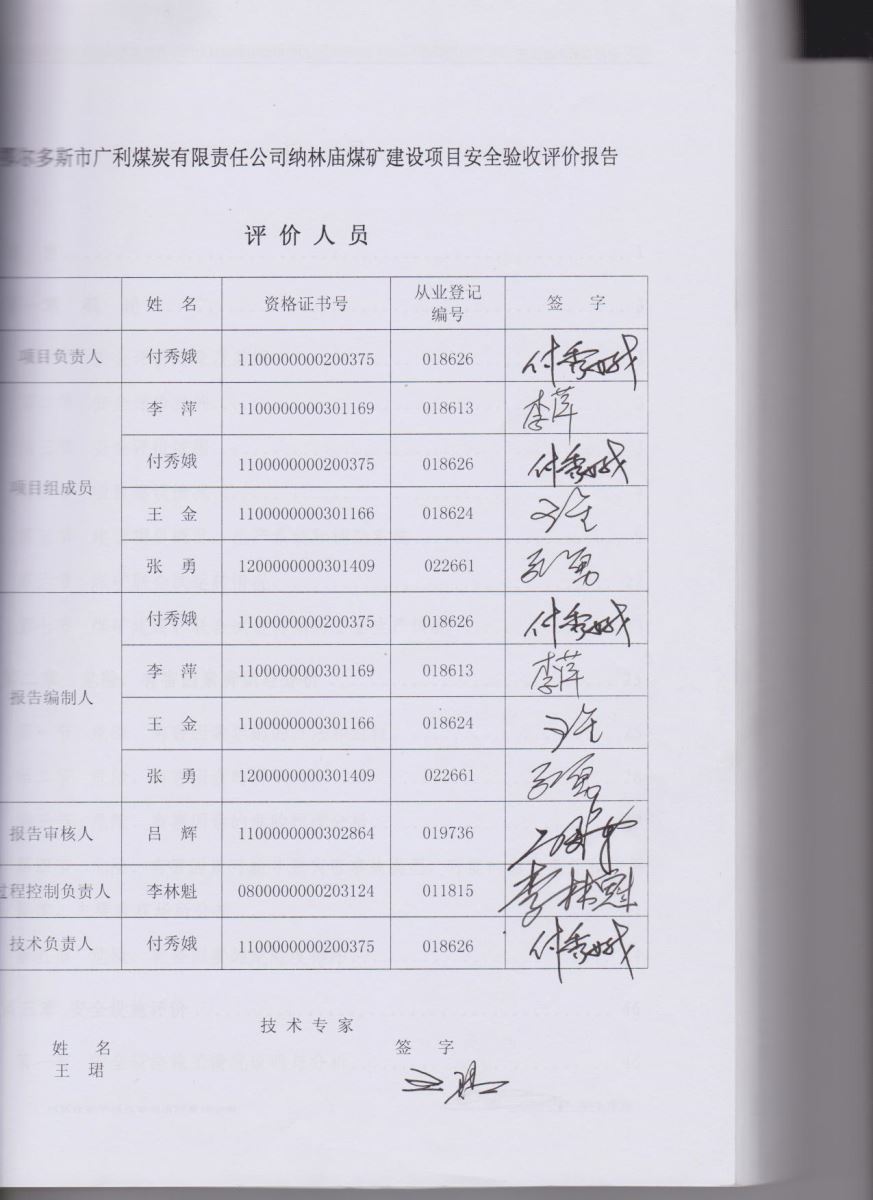 鄂尔多斯市广利煤炭有限责任公司纳林庙煤矿建设项目安全验收评价报告
评价人员
姓 名 资格证书号 从业登记编号 签 字
项目负责人 付秀娥 1100000000200375 018626 付秀娥
项目组成员 李 萍 1100000000301169 018613 李萍
付秀娥 1100000000200375 018626 付秀娥
王 金 1100000000301166 018624 王金
张 勇 1200000000301409 022661 张勇
报告编制人 付秀娥 1100000000200375 018626 付秀娥
李 萍 1100000000301169 018613 李萍
王 金 1100000000301166 018624 王金
张 勇 1200000000301409 022661 张勇
报告审核人 吕 辉 1100000000302864 019736
过程控制负责人 李林魁 0800000000203124 011815 李林魁
技术负责人 付秀娥 1100000000200375 018626 付秀娥
技术专家
姓 名 签 字
王 珺